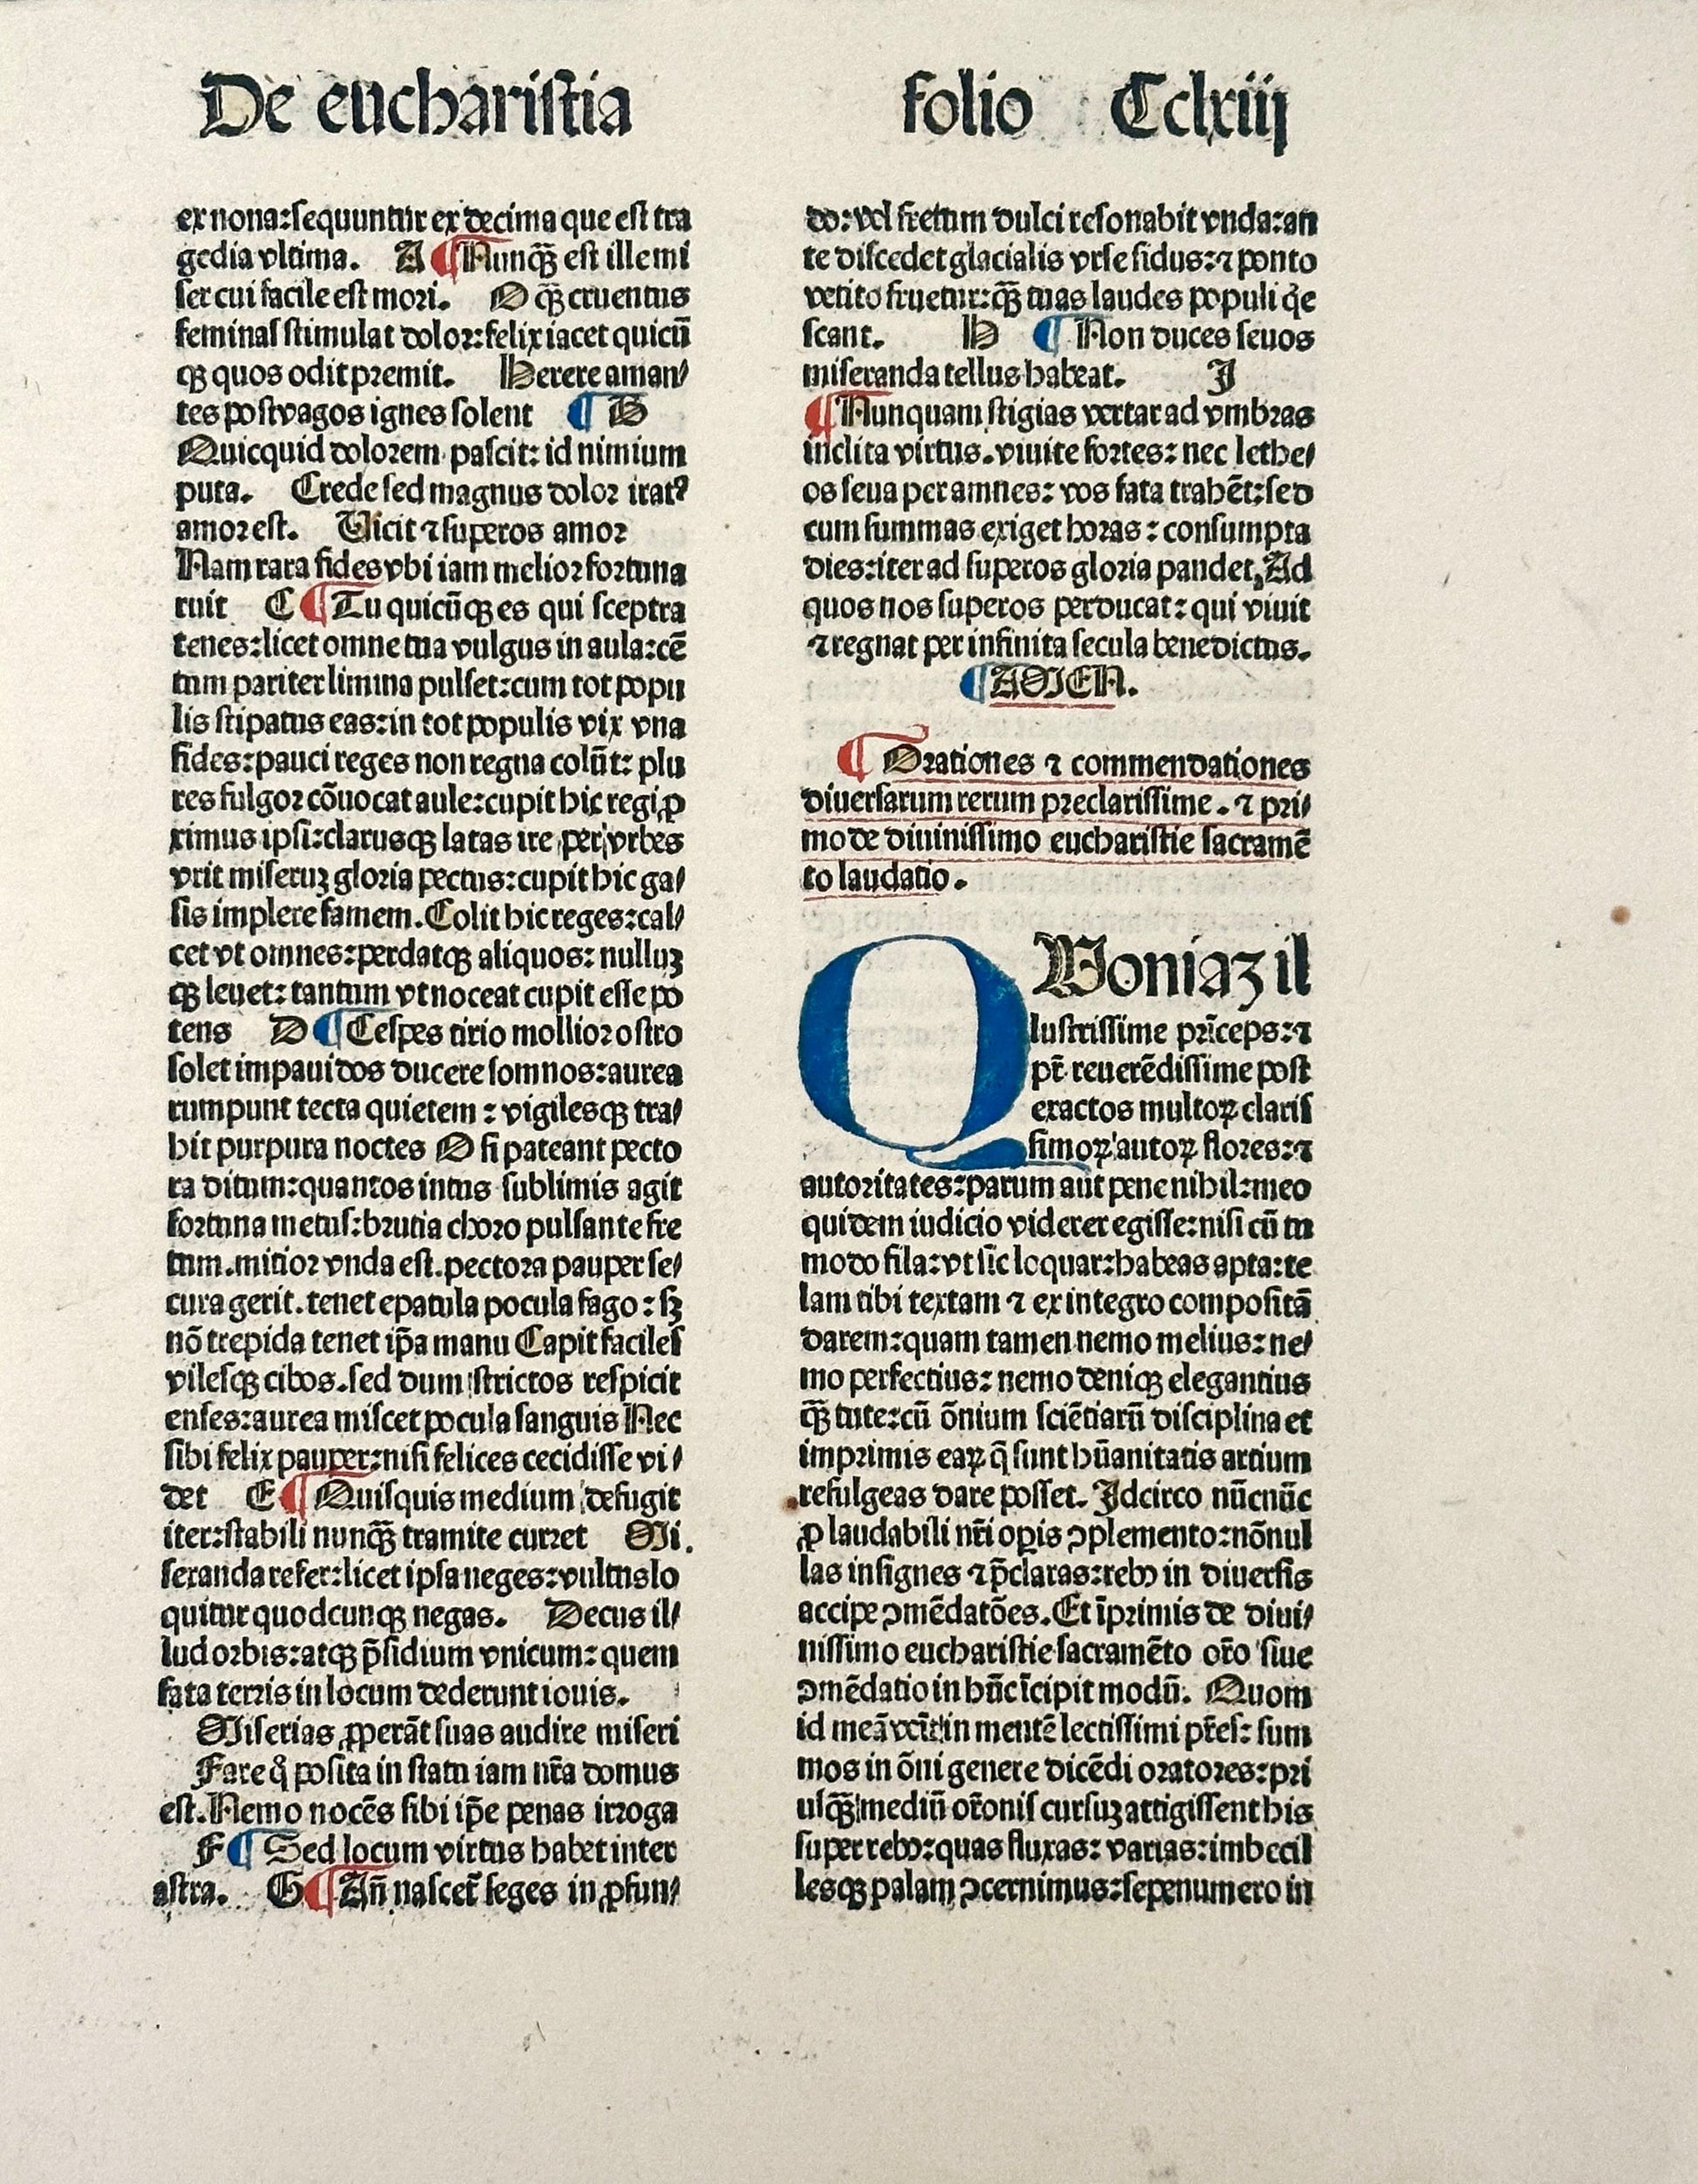 De eucharistia
folio Cclxiij
ex nona:sequuntur ex decima que est tra
gedia vltima. A ¶ Nunqꝫ̃ est ille mi
ser cui facile est mori. O qꝫ̃ cruentus
feminas stimulat dolor:felix iacet quicũ
qꝫ quos odit premit. Herere aman/
tes post vagos ignes solent ¶ B
Quicquid dolorem pascit: id nimium
puta. Crede sed magnus dolor iratꝰ
amor est. Vicit ⁊ superos amor
Nam rara fides vbi iam melior fortuna
ruit C ¶ Tu quicũqꝫ es qui sceptra
tenes:licet omne tua vulgus in aula:cẽ
tum pariter limina pulset:cum tot popu
lis stipatus eas:in tot populis vix vna
fides:pauci reges non regna colũt: plu
res fulgor cõuocat aule:cupit hic regi ꝓ
ximus ipsi:clarusqꝫ latas ire per vrbes
vrit miseruꝫ gloria pectus:cupit hic ga/
sis implere famem. Colit hic reges:cal/
cet vt omnes:perdatqꝫ aliquos: nulluꝫ
qꝫ leuet: tantum vt noceat cupit esse po
tens D ¶ Cespes tirio mollior ostro
solet impauidos ducere somnos:aurea
rumpunt tecta quietem : vigilesqꝫ tra/
hit purpura noctes O si pateant pecto
ra ditum:quantos intus sublimis agit
fortuna metus:brutia choro pulsante fre
tum.mitior vnda est.pectora pauper se/
cura gerit.tenet epatula pocula fago : sꝫ
nõ trepida tenet ip̃a manu Capit faciles
vilesqꝫ cibos.sed dum strictos respicit
enses:aurea miscet pocula sanguis Nec
sibi felix pauper:nisi felices cecidisse vi/
det E ¶ Quisquis medium defugit
iter:stabili nunqꝫ̃ tramite curret Mi.
seranda refer:licet ipsa neges:vultus lo
quitur quodcunqꝫ negas. Decus il/
lud orbis:atqꝫ p̃sidium vnicum: quem
fata terris in locum dederunt iouis.
Miserias ꝓperãt suas audire miseri
Fare q̊ posita in statu iam nr̃a domus
est.Nemo nocẽs sibi ip̃e penas irroga
F ¶ Sed locum virtus habet inter
astra. G ¶ An̄ nascet̃ seges in ꝓfun/
do:vel fretum dulci resonabit vnda:an
te discedet glacialis vrse sidus:⁊ ponto
vetito fruetur:qꝫ̃ tuas laudes populi q̇e
scant. H ¶ Non duces seuos
miseranda tellus habeat. I
¶ Nunquam stigias vertar ad vmbras
inclita virtus.viuite fortes: nec lethe/
os seua per amnes: vos fata trahẽt:sed
cum summas exiget horas : consumpta
dies:iter ad superos gloria pandet, Ad
quos nos superos perducat: qui viuit
⁊ regnat per infinita secula benedictus.
¶ AMEN.
¶ Orationes ⁊ commendationes
diuersarum rerum preclarissime. ⁊ pri/
mo de diuinissimo eucharistie sacramẽ
to laudatio.
QVoniaꝫ il
lustrissime prĩceps:⁊
pr̃ reuerẽdissime post
exactos multoꝝ claris
simoꝝ autoꝝ flores:⁊
autoritates:parum aut pene nihil:meo
quidem iudicio viderer egisse:nisi cũ tu
modo fila:vt sic loquar:habeas apta:te
lam tibi textam ⁊ ex integro compositã
darem:quam tamen nemo melius: ne/
mo perfectius: nemo deniqꝫ elegantius
qꝫ̃ tute:cũ õnium sciẽtiarũ disciplina et
imprimis eaꝝ q̃ sunt hũanitatis artium
refulgeas dare posset. Idcirco nũcnũc
ꝓ laudabili nr̃i opis ꝯplemento:nõnul
las insignes ⁊ p̃claras:rebꝰ in diuersis
accipe ꝯmẽdatões.Et ĩprimis de diui/
nissimo eucharistie sacramẽto or̃o siue
ꝯmẽdatio in hũc ĩcipit modũ. Quom
id meã vẽit in mentẽ lectissimi pr̃es: sum
mos in õni genere dicẽdi oratores:pri
usqꝫ̃ mediũ or̃onis cursuꝫ attigissent his
super rebꝰ:quas fluxas: varias:imbecil
lesqꝫ palam ꝯcernimus:sepenumero in